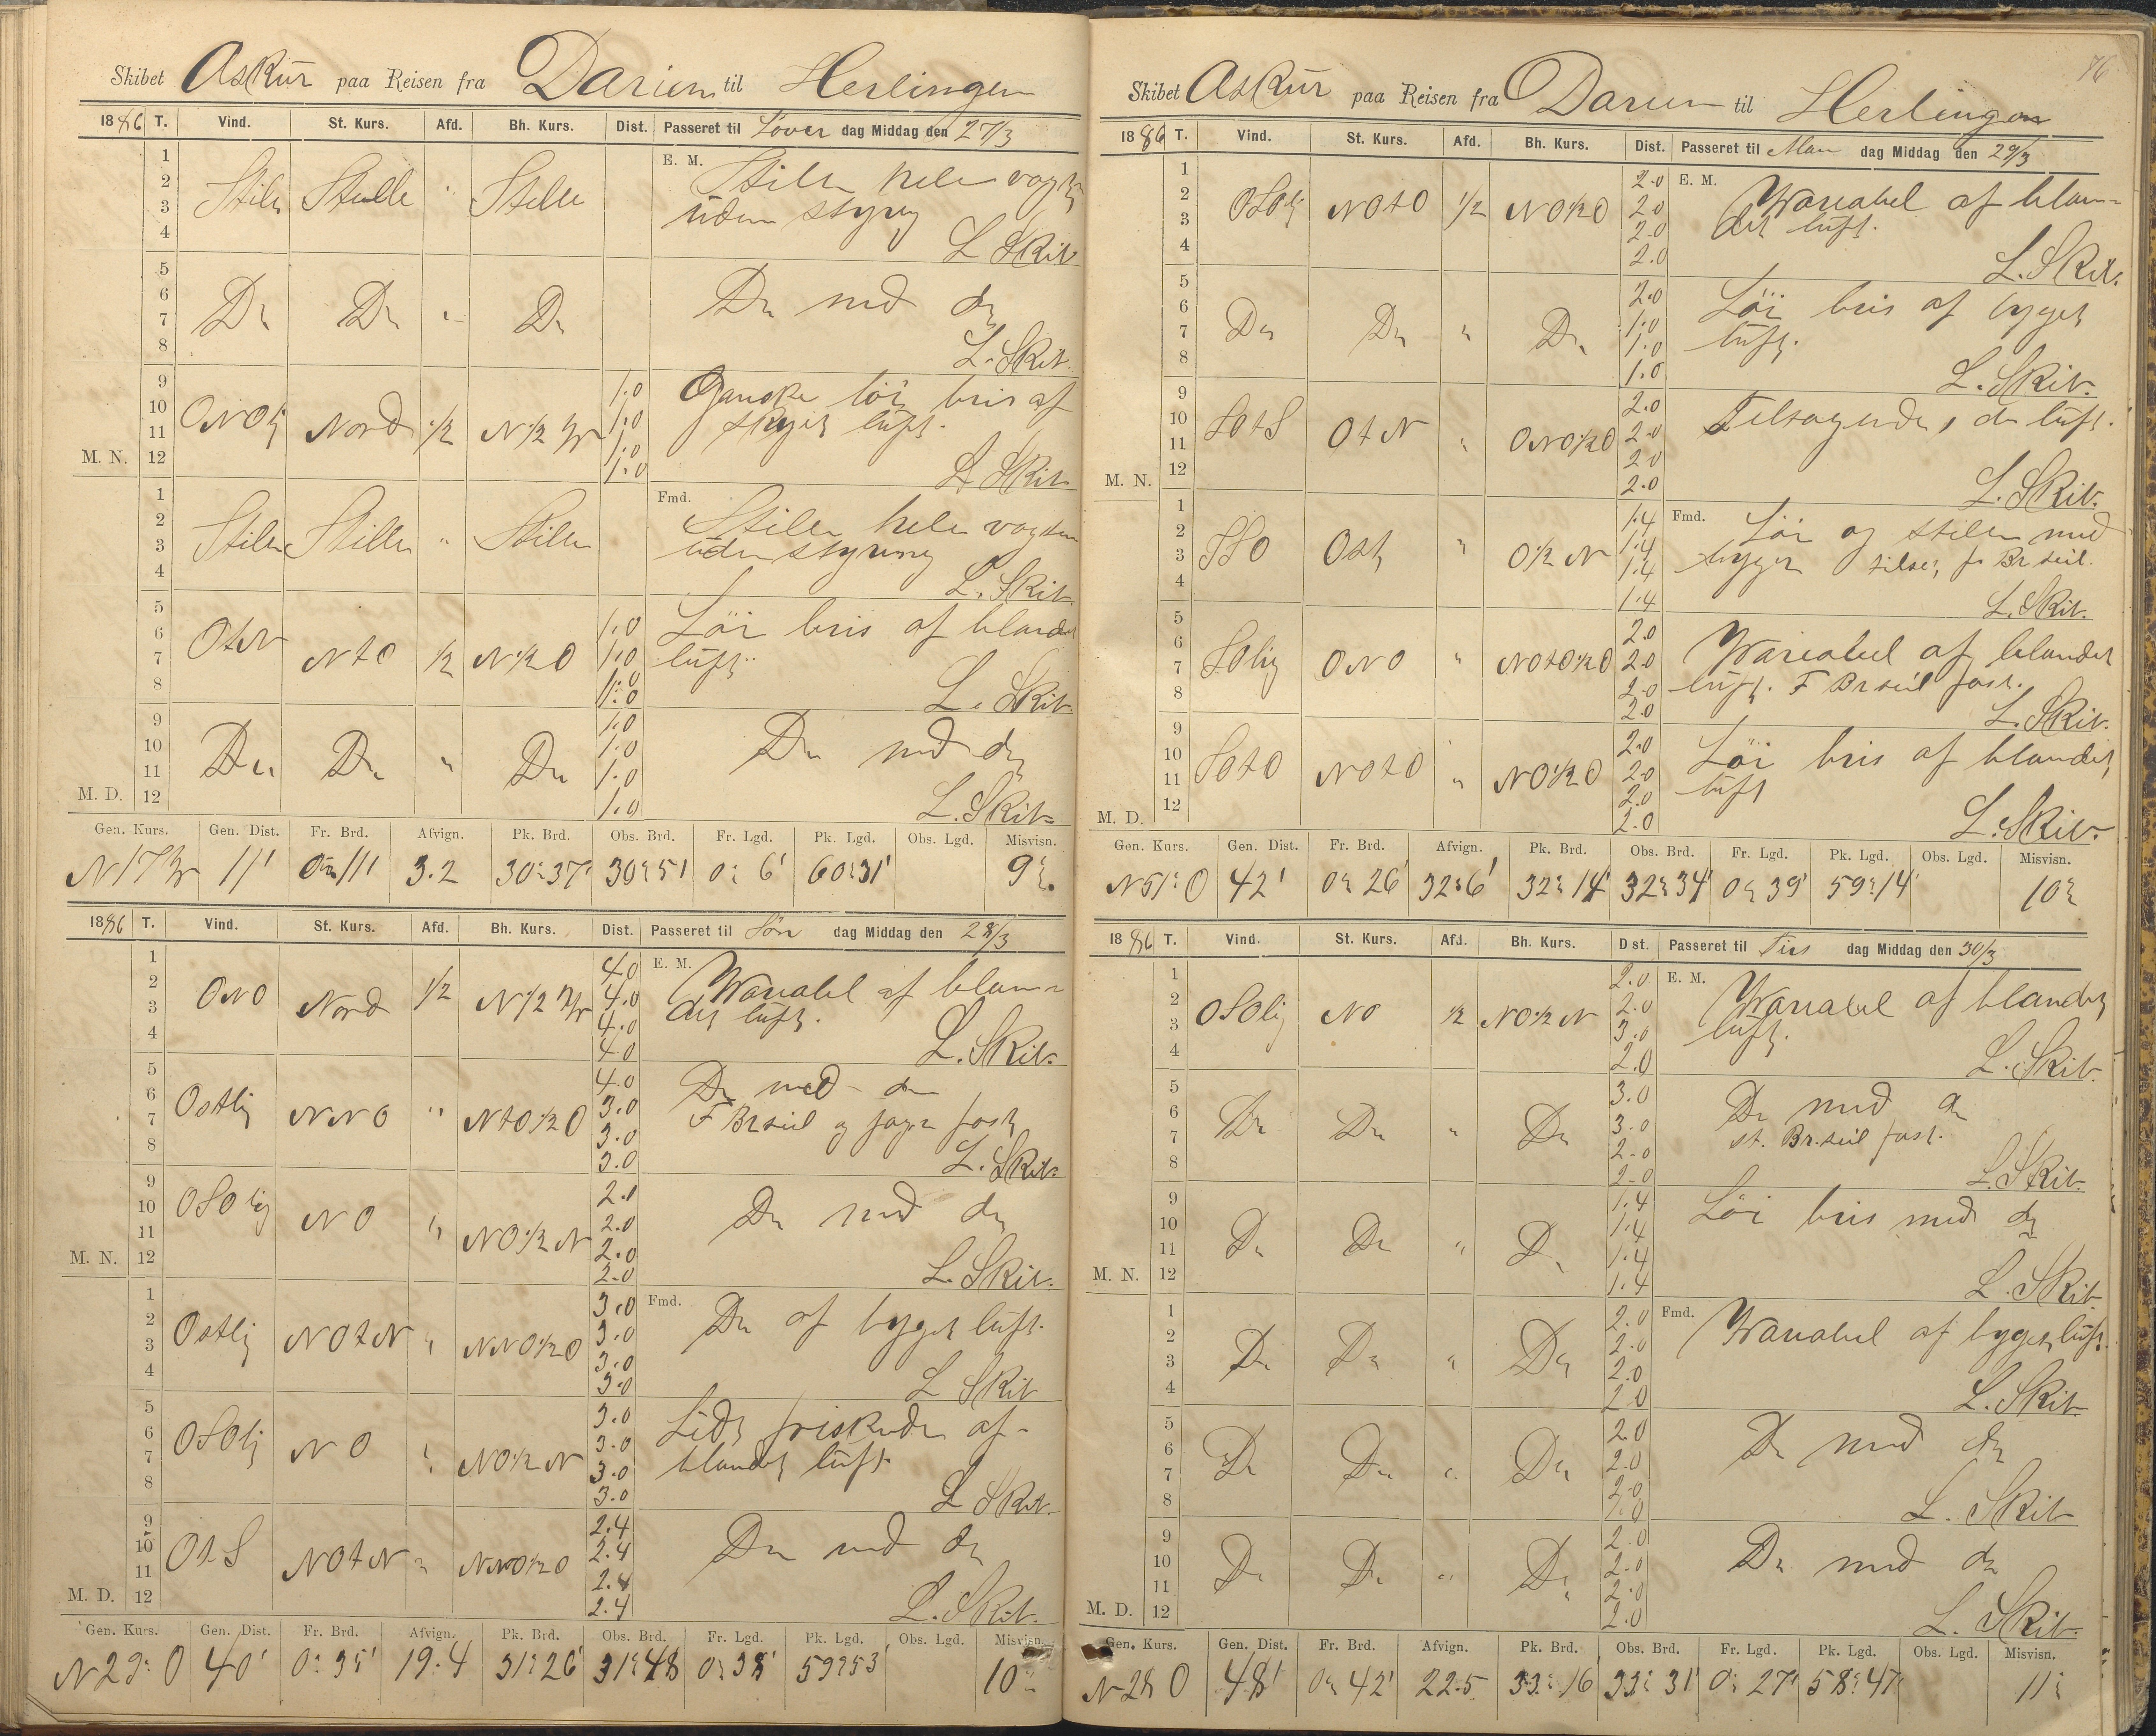 Skibet Askur paa Reisen fra Darien til Herlingen
1886 T. Vind. St. Kurs. Afd. Bh. Kurs. Dist. Passeret til Löver dag Middag den 27/3
1 2 3 4 Stille Stille " Stille E. M. Stille hele vagten
uden styring
L. Skib.
5 6 7 8 Do Do " Do Do med do
L. Skib.
9 10 11 12 M. N. ONOlig Nord 1/2 N 1/2 W 1.0 1.0 1.0 1.0 Ganske löi bris af
skyet luft.
L. Skib.
1 2 3 4 Stille Stille " Stille Fmd. Stille hele vagten
uden styring
L. Skib.
5 6 7 8 OtN NtO 1/2 N 1/2 O 1.0 1.0 1.0 1.0 Löi bris af blandet
luft.
L. Skib.
9 10 11 12 M. D. Do Do " Do 1.0 1.0 1.0 1.0 Do med do
L. Skib.
Gen. Kurs. Gen. Dist. Fr. Brd. Afvign. Pk. Brd. Obs. Brd. Fr. Lgd. Pk. Lgd. Obs. Lgd. Misvisn.
N 17 W 11' 0° 11' 3.2 30° 37' 30° 51' 0° 6' 60° 31' 9°
1886 T. Vind. St. Kurs. Afd. Bh. Kurs. Dist. Passeret til Sön dag Middag den 28/3
1 2 3 4 ONO Nord 1/2 N 1/2 W 4.0 4.0 4.0 4.0 E. M. Wariabel af blan=
det luft.
L. Skib.
5 6 7 8 Ostlig NNO " NtO 1/2 O 4.0 3.0 3.0 3.0 Do med do
F Brseil og jager fast
L. Skib.
9 10 11 12 M. N. OSOlig NO " NO 1/2 N 2.0 2.0 2.0 2.0 Do med do
L. Skib.
1 2 3 4 Ostlig NOtN " NNO 1/2 O 3.0 3.0 3.0 3.0 Fmd. Do af byget luft.
L. Skib
5 6 7 8 OSOlig NO " NO 1/2 N 3.0 3.0 3.0 3.0 Lidt friskende af
blandet luft
L. Skib.
9 10 11 12 M. D. OtS NOtN " NNO 1/2 O 2.4 2.4 2.4 2.4 Do med do
L. Skib.
Gen. Kurs. Gen. Dist. Fr. Brd. Afvign. Pk. Brd. Obs. Brd. Fr. Lgd. Pk. Lgd. Obs. Lgd. Misvisn.
N 29° O 40' 0° 35' 19.4 31° 26' 31° 48 0° 38' 59° 53' 10°
76
Skibet Askur paa Reisen fra Darien til Herlingen
1886 T. Vind. St. Kurs. Afd. Bh. Kurs. Dist. Passeret til Man dag Middag den 29/3
1 2 3 4 OSOlig NOtO 1/2 NO 1/2 O 2.0 2.0 2.0 2.0 E. M. Wariabel af blan=
det luft.
L. Skib.
5 6 7 8 Do Do " Do 2.0 1.0 1.0 1.0 Löi bris af byget
luft.
L. Skib.
9 10 11 12 M. N. SOtS OtN " ONO 1/2 O 2.0 2.0 2.0 2.0 Tiltagende, do luft.
L. Skib.
1 2 3 4 SSO Ost " O 1/2 N 1.4 1.4 1.4 1.4 Fmd. Löi og stille med
byger tilset f Br seil.
L. Skib.
5 6 7 8 SOlig ONO " NOtO 1/2 O 2.0 2.0 2.0 2.0 Wariabel af blandet
luft. F Brseil fast.
L. Skib.
9 10 11 12 M. D. SOtO NOtO " NO 1/2 O 2.0 2.0 2.0 2.0 Löi bris af blandet
luft
L. Skib.
Gen. Kurs. Gen. Dist. Fr. Brd. Afvign. Pk. Brd. Obs. Brd. Fr. Lgd. Pk. Lgd. Obs. Lgd. Misvisn.
N 51° O 42' 0° 26' 32°6' 32° 14' 32° 34' 0° 39' 59° 14' 10°
1886 T. Vind. St. Kurs. Afd. Bh. Kurs. D st. Passeret til Tirs dag Middag den 30/3
1 2 3 4 OSOlig NO 1/2 NO 1/2 N 2.0 2.0 3.0 2.0 E. M. Wariabel af blandet
luft.
L. Skib.
5 6 7 8 Do Do " Do 3.0 3.0 2.0 2.0 Do med do
st. Br.seil fast.
L. Skib.
9 10 11 12 M. N. Do Do " Do 1.4 1.4 1.4 1.4 Löi bris med do
L. Skib.
1 2 3 4 Do Do " Do 2.0 2.0 2.0 2.0 Fmd. Wariabel af byget luft.
L. Skib.
5 6 7 8 Do Do " Do 2.0 2.0 2.0 2.0 Do med do
L. Skib
9 10 11 12 M. D. Do Do " Do 2.0 2.0 2.0 2.0 Do med do
L. Skib.
Gen. Kurs. Gen. Dist. Fr. Brd. Afvign. Pk. Brd. Obs. Brd. Fr. Lgd. Pk. Lgd. Obs. Lgd. Misvisn.
N 28 O 48' 0° 42' 22.5 33° 16' 33° 31' 0° 27' 58° 47' 11°